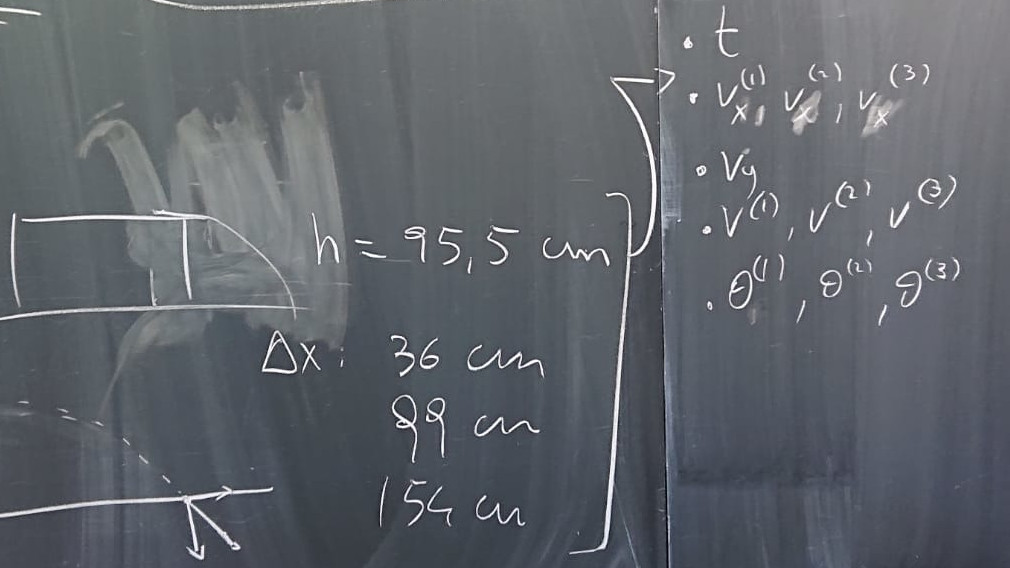 h = 95,5 cm
Δx: 36 cm
99 cm
154 cm
• t
• Vx⁽¹⁾, Vx⁽²⁾, Vx⁽³⁾
• Vy
• V⁽¹⁾, V⁽²⁾, V⁽³⁾
• θ⁽¹⁾, θ⁽²⁾, θ⁽³⁾